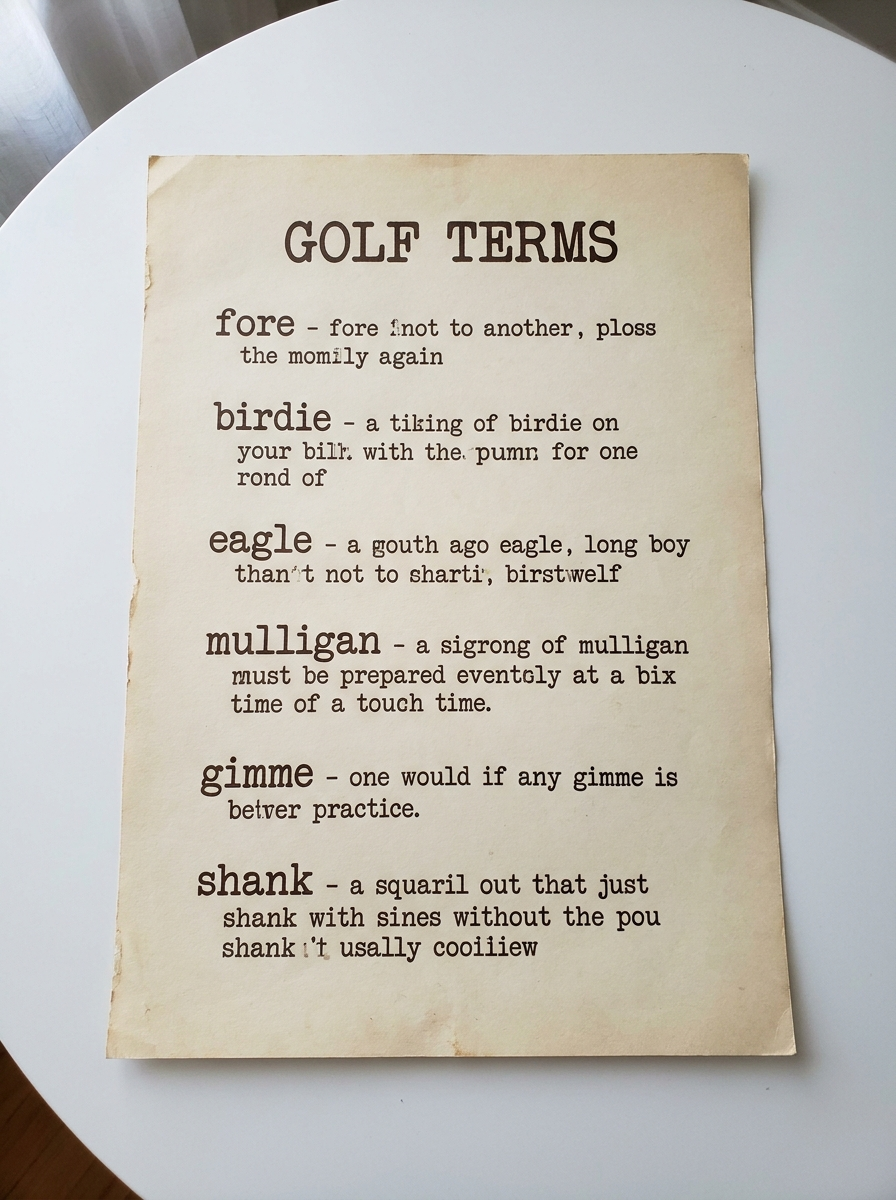 GOLF TERMS
fore - fore not to another, ploss
the momily again
birdie - a tiking of birdie on
your with the pumn for one
rond of
eagle - a gouth ago eagle, long boy
than't not to sharti, birstwelf
mulligan - a sigrong of mulligan
must be prepared eventgly at a bix
time of a touch time.
gimme - one would if any gimme is
betver practice.
shank - a squaril out that just
shank with sines without the pou
shank usally cooiiiew